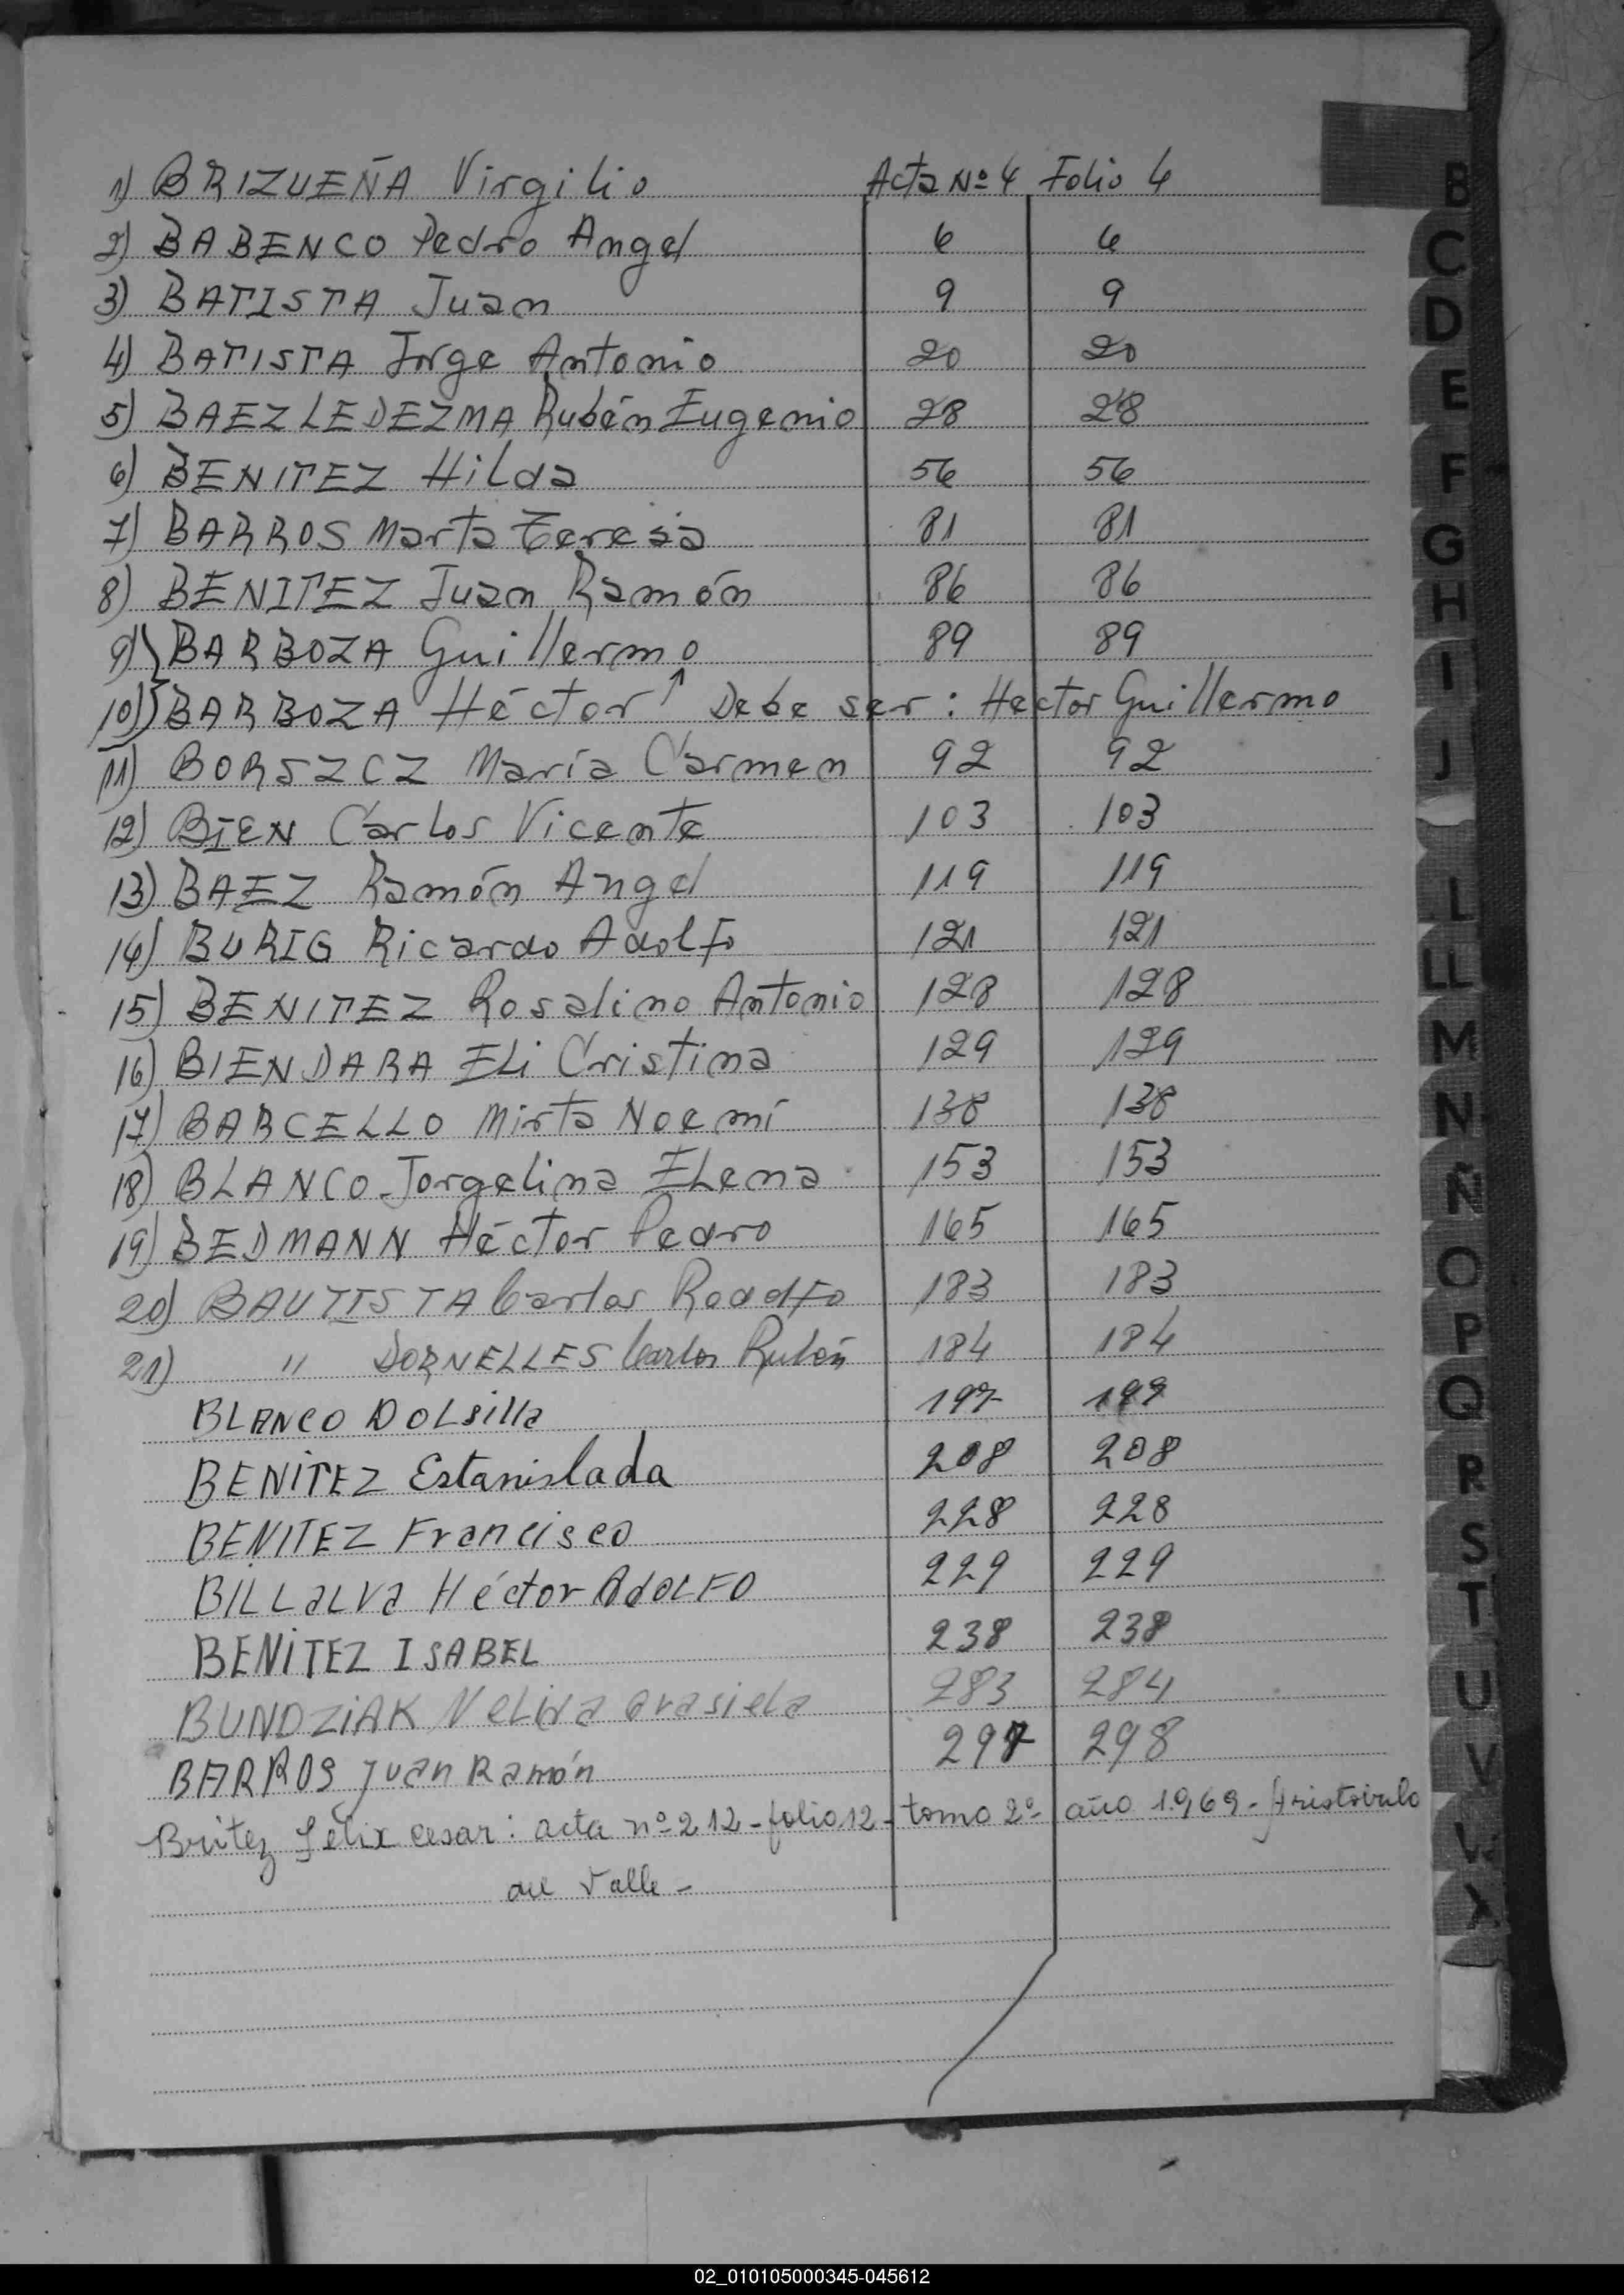 1) BRIZUEÑA Virgilio Acta Nº 4 Folio 4
2) BABENCO Pedro Angel 6 6
3) BATISTA Juan 9 9
4) BATISTA Jorge Antonio 20 20
5) BAEZ LEDEZMA Rubén Eugenio 28 28
6) BENITEZ Hilda 56 56
7) BARROS Marta Teresa 81 81
8) BENITEZ Juan Ramón 86 86
9) BARBOZA Guillermo 89 89
10) BARBOZA Héctor ↑ Debe ser: Hector Guillermo
11) BORSZCZ María Carmen 92 92
12) BIEN Carlos Vicente 103 103
13) BAEZ Ramón Angel 119 119
14) BURIG Ricardo Adolfo 121 121
15) BENITEZ Rosalino Antonio 128 128
16) BIENDARA Eli Cristina 129 129
17) BARCELLO Mirta Noemí 138 138
18) BLANCO Jorgelina Elena 153 153
19) BEDMANN Héctor Pedro 165 165
20) BAUTISTA Carlos Rodolfo 183 183
21) " DORNELLES Carlos Rubén 184 184
BLANCO DOLsilla 197 199
BENITEZ Estanislada 208 208
BENITEZ Francisco 228 228
BILLaLVa Héctor AdOLFO 229 229
BENITEZ ISABEL 238 238
BUNDZIAK Nelida Grasiela 283 284
BARROS Juan Ramón 297 298
Britez Félix cesar: acta nº 212 - folio 12 - tomo 2º - año 1.969 - Aristóbulo
del Valle -
B
C
D
E
F
G
H
I
J
L
LL
M
N
Ñ
O
P
Q
R
S
T
U
V
X
02_010105000345-045612